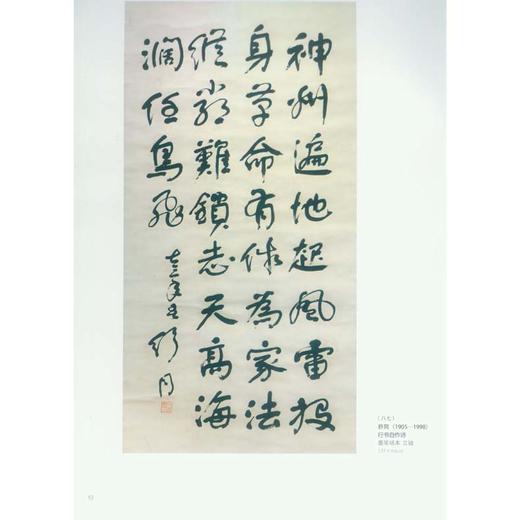 神州遍地起風雷投
身革命有作為家法
縱嚴難鎖志天高海
濶任鳥飛
舒同
（八七）
舒同（1905—1998）
行书自作诗
墨笔纸本 立轴